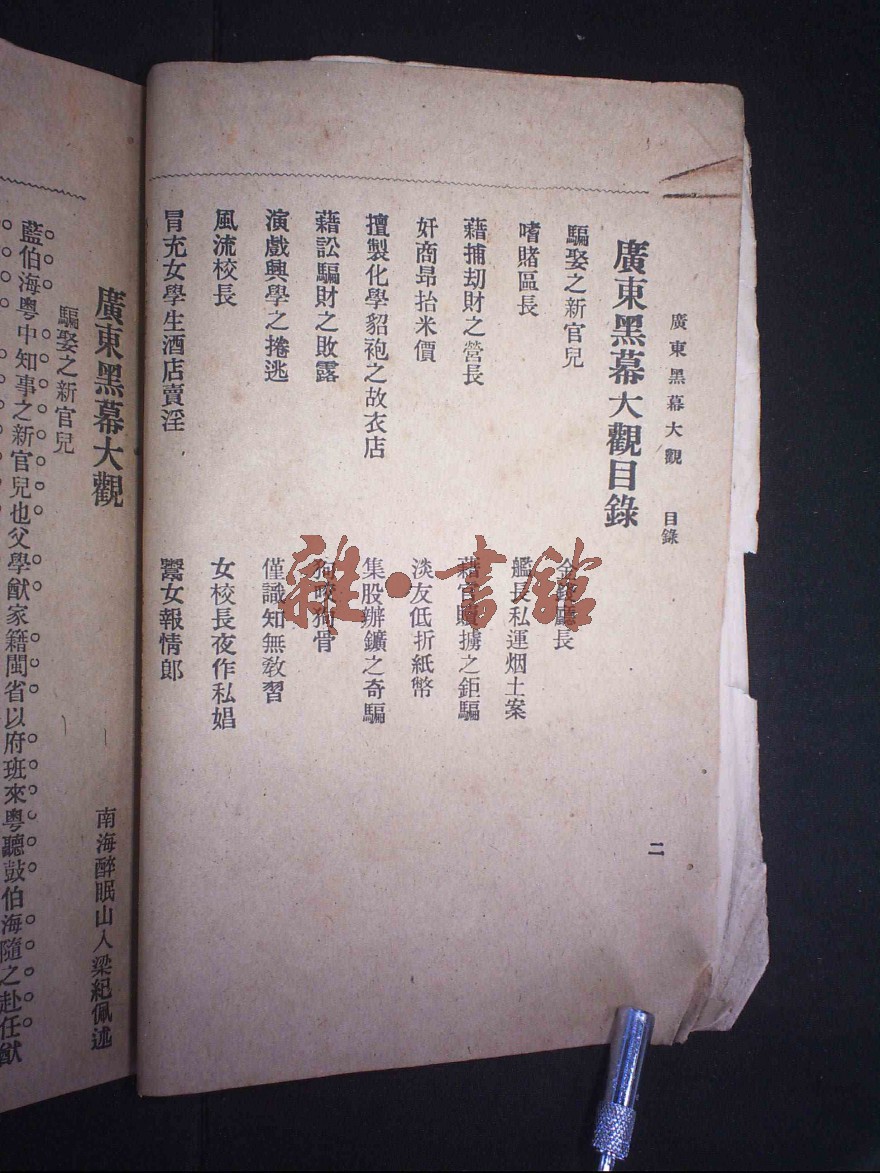 廣東黑幕大觀 目錄
二
廣東黑幕大觀目錄
騙娶之新官兒
金錢廳長
嗜賭區長
艦長私運烟土案
藉捕刧財之營長
藉官贖擄之鉅騙
奸商昂抬米價
淡友低折紙幣
擅製化學貂袍之故衣店
集股辦鑛之奇騙
藉訟騙財之敗露
狗咬狗骨
演戲興學之捲逃
僅識知無教習
風流校長
女校長夜作私娼
冒充女學生酒店賣淫
鬻女報情郎
雜·書館
廣東黑幕大觀
南海醉眠山人梁紀佩述
騙娶之新官兒
藍伯海粵中知事之新官兒也父學猷家籍閩省以府班來粵聽鼓伯海隨之赴任猷